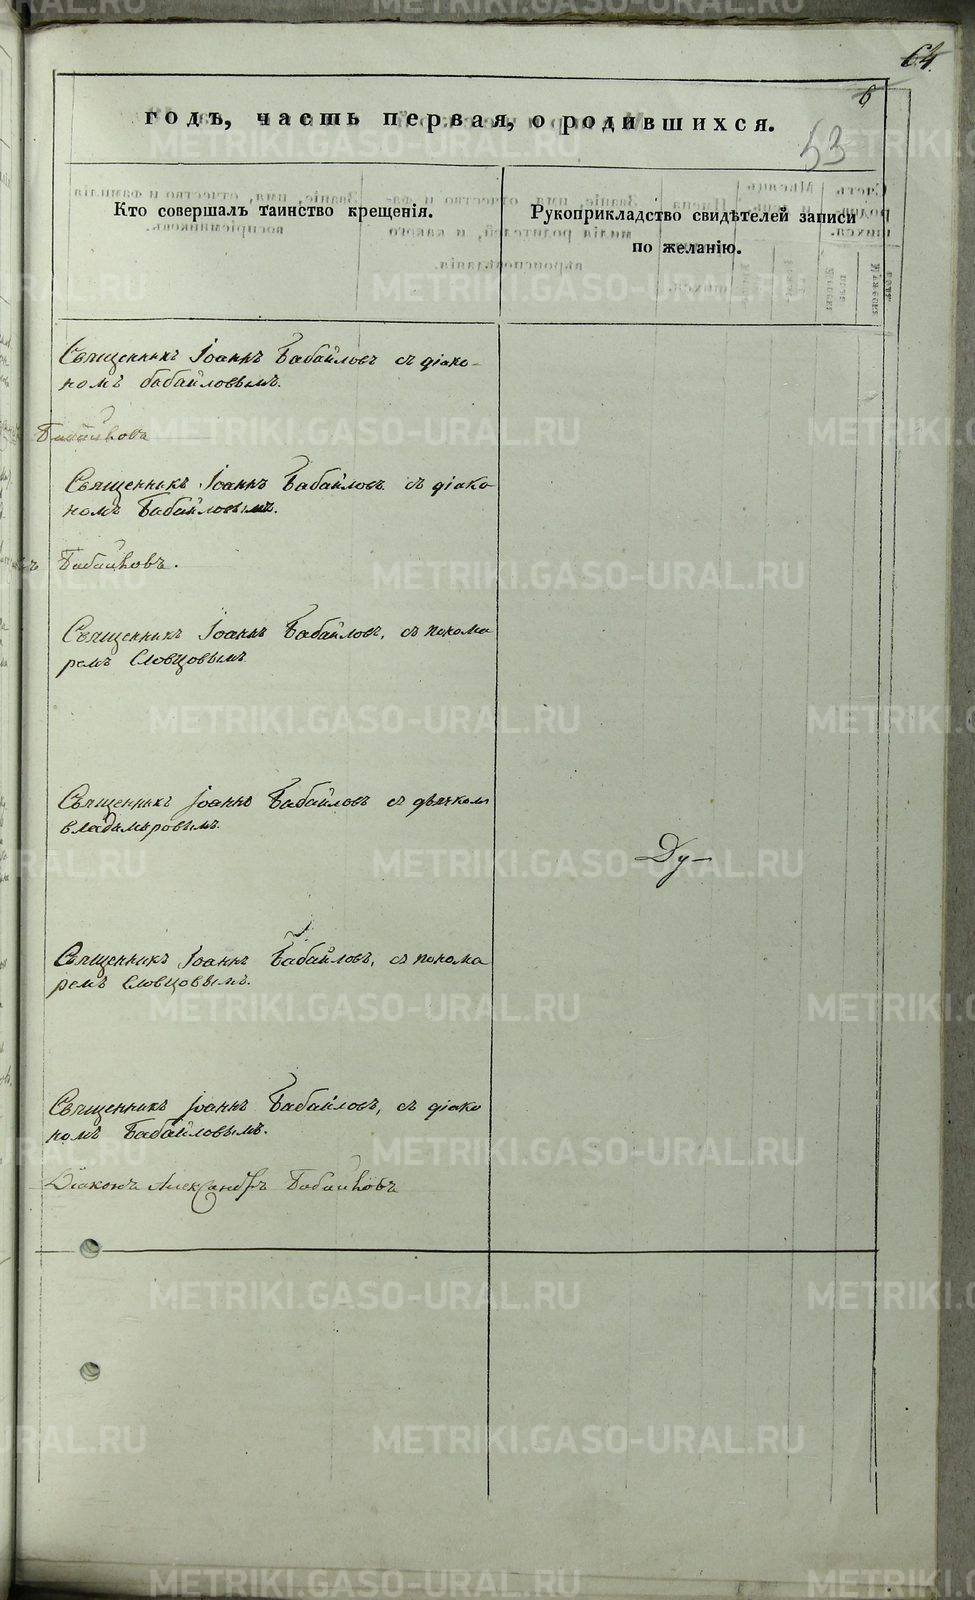 64.
6
годъ, часть первая, о родившихся.
53
Кто совершалъ таинство крещенія.
Рукоприкладство свидѣтелей записи
по желанію.
Священникъ Іоаннъ Бабайловъ съ діако-
номъ бабайловымъ.
Священникъ Іоаннъ Бабайловъ съ діако
номъ Бабайловымъ.
Священникъ Іоаннъ Бабайловъ, съ понома
ремъ Словцовымъ
Священникъ Іоаннъ Бабайловъ съ дьячкомъ
владимѣровымъ.
Ду-
Священникъ Іоаннъ Бабайловъ, съ понома
ремъ Словцовымъ.
Священникъ Іоаннъ Бабайловъ, съ діако
номъ Бабайловымъ.
Діаконъ Александръ
METRIKI.GASO-URAL.RU